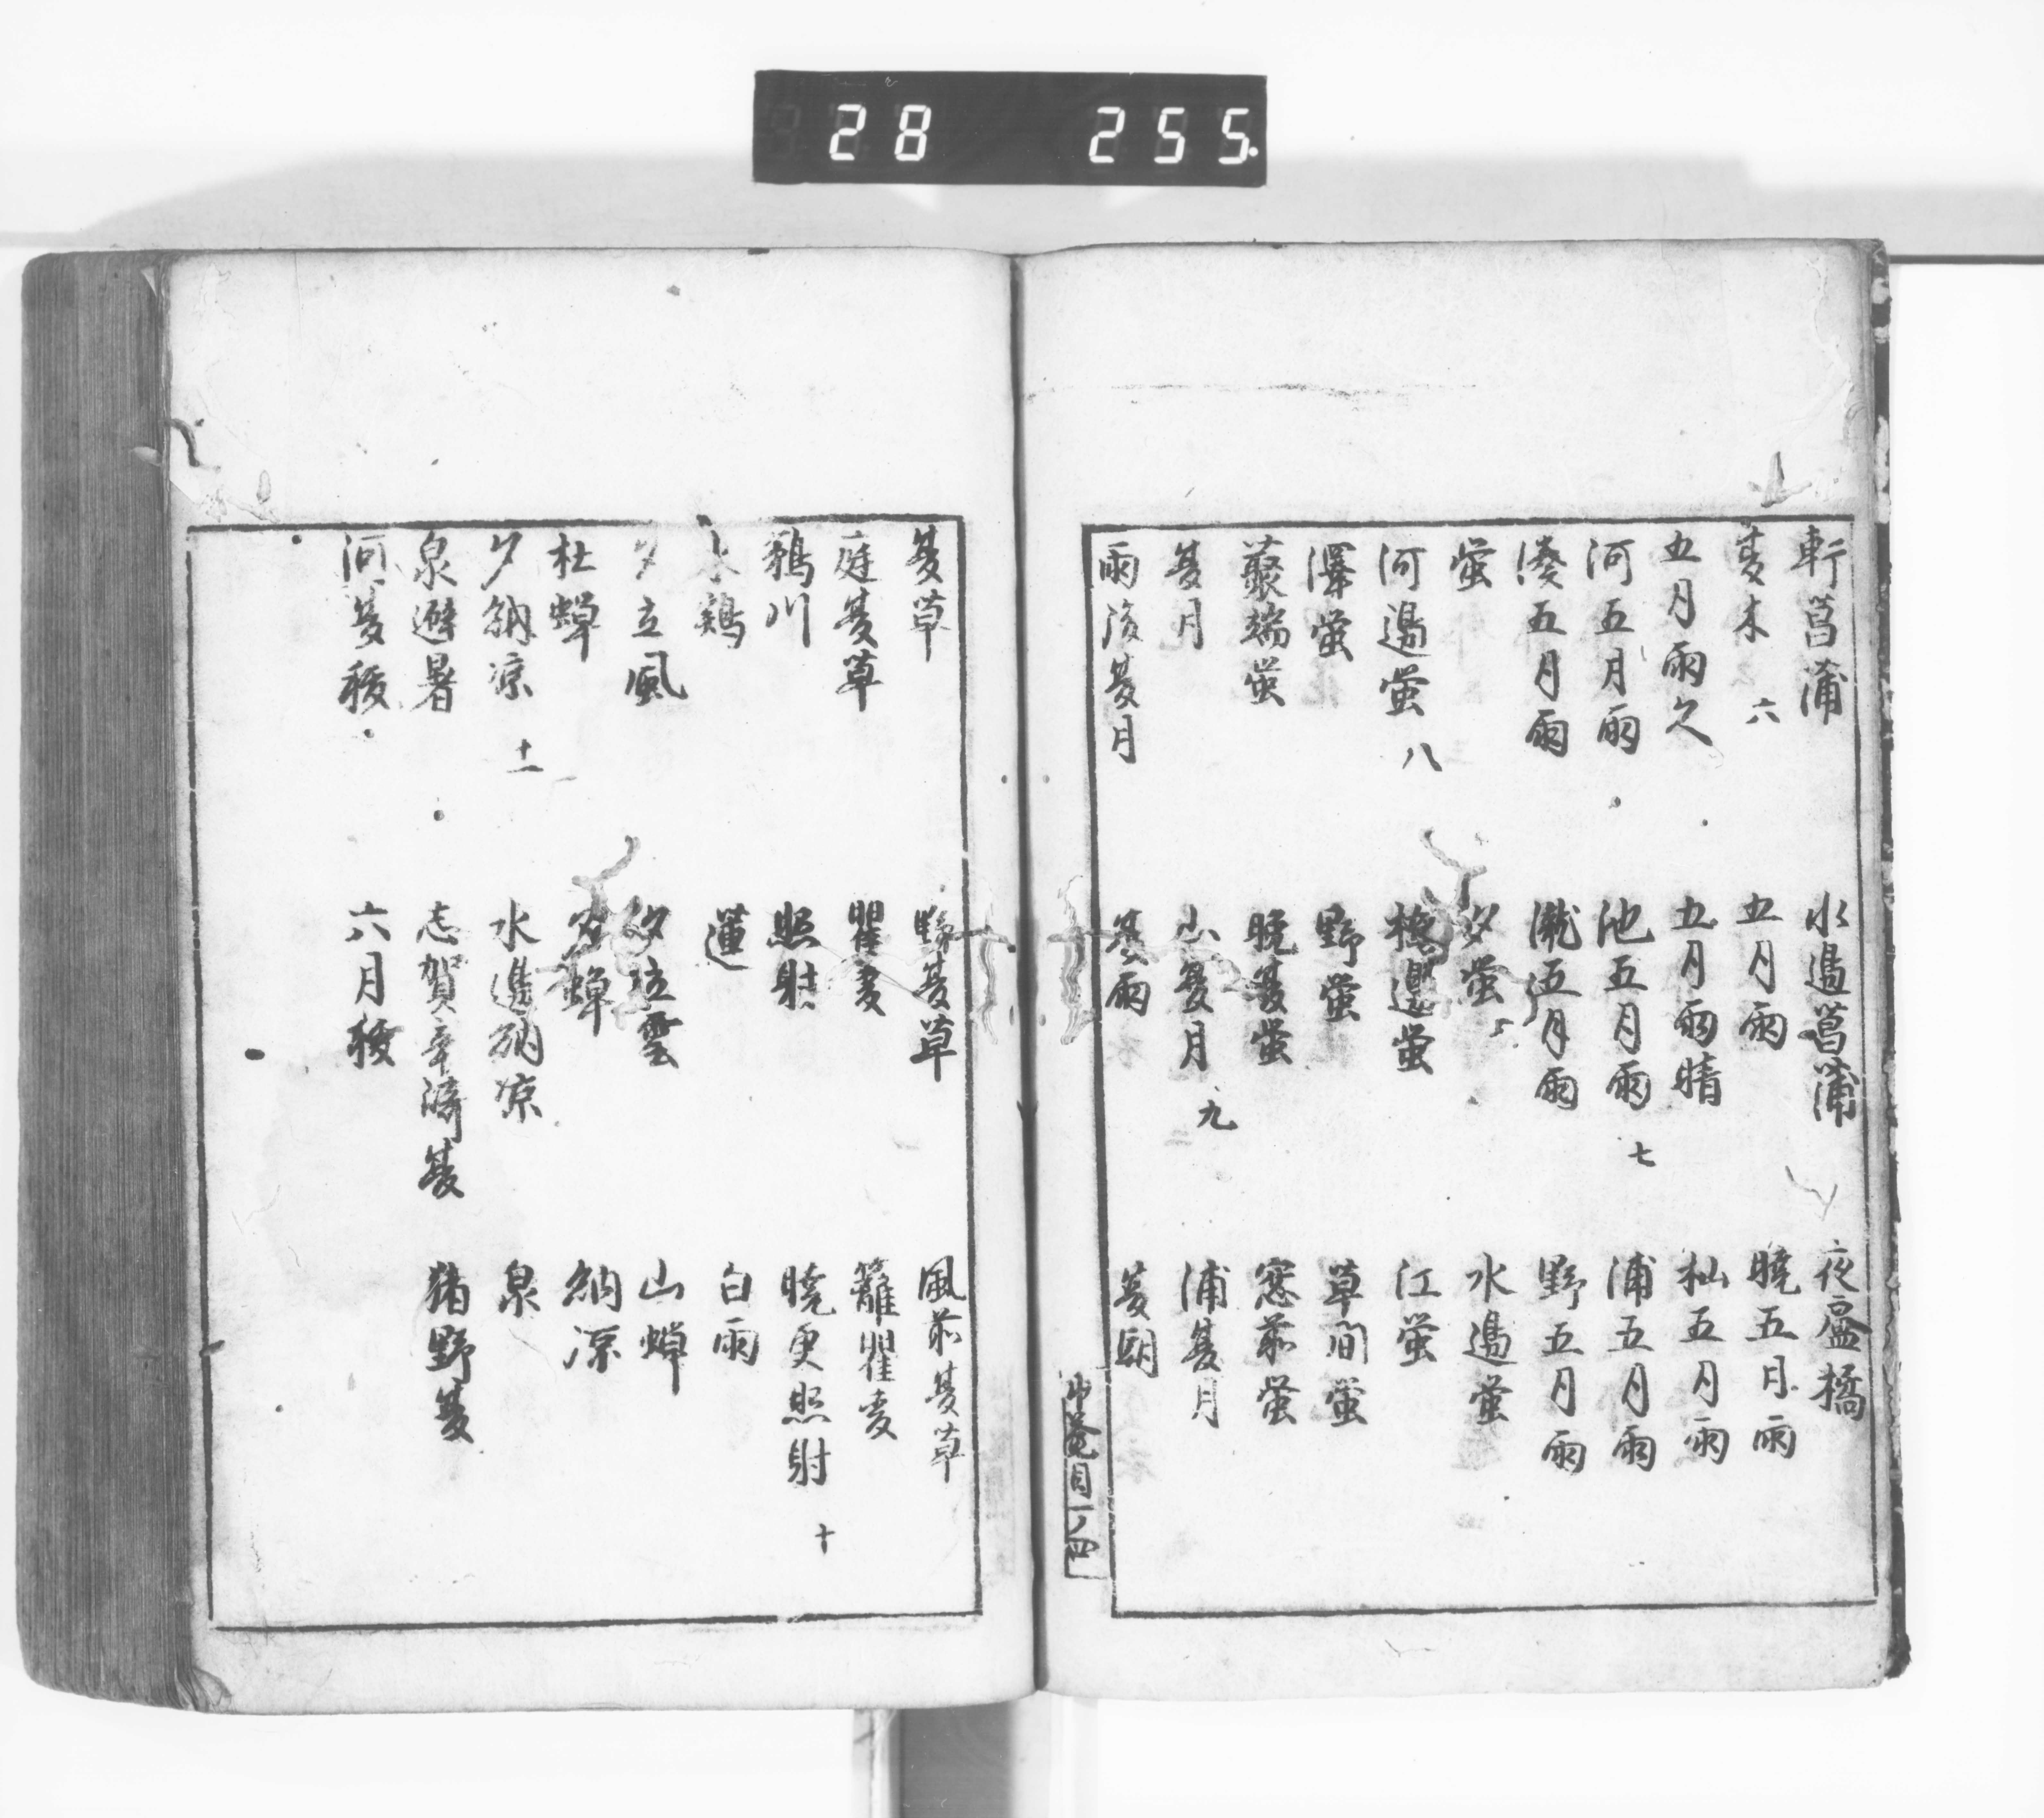 28 255.
軒菖蒲 水邉菖蒲 夜盧橘
夏木 六 五月雨 曉五月雨
五月雨久 五月雨晴 杣五月雨
河五月雨 池五月雨 七 浦五月雨
湊五月雨 瀧五月雨 野五月雨
螢 夕螢 水邉螢
河邉螢 八 橋邉螢 江螢
澤螢 野螢 草間螢
叢端螢 晩夏螢 窓前螢
夏月 山夏月 九 浦夏月
雨後夏月 夏雨 夏朝
目一ノ四
夏草 野夏草 風前夏草
庭夏草 瞿麦 籬瞿麦
鵜川 照射 曉更照射 十
水鶏 蓮 白雨
夕立風 夕立雲 山蟬
杜蟬 夕蟬 納凉
夕納凉 十一 水邉納凉 泉
泉避暑 志賀辛﨑夏 猪野夏
河夏祓 六月祓